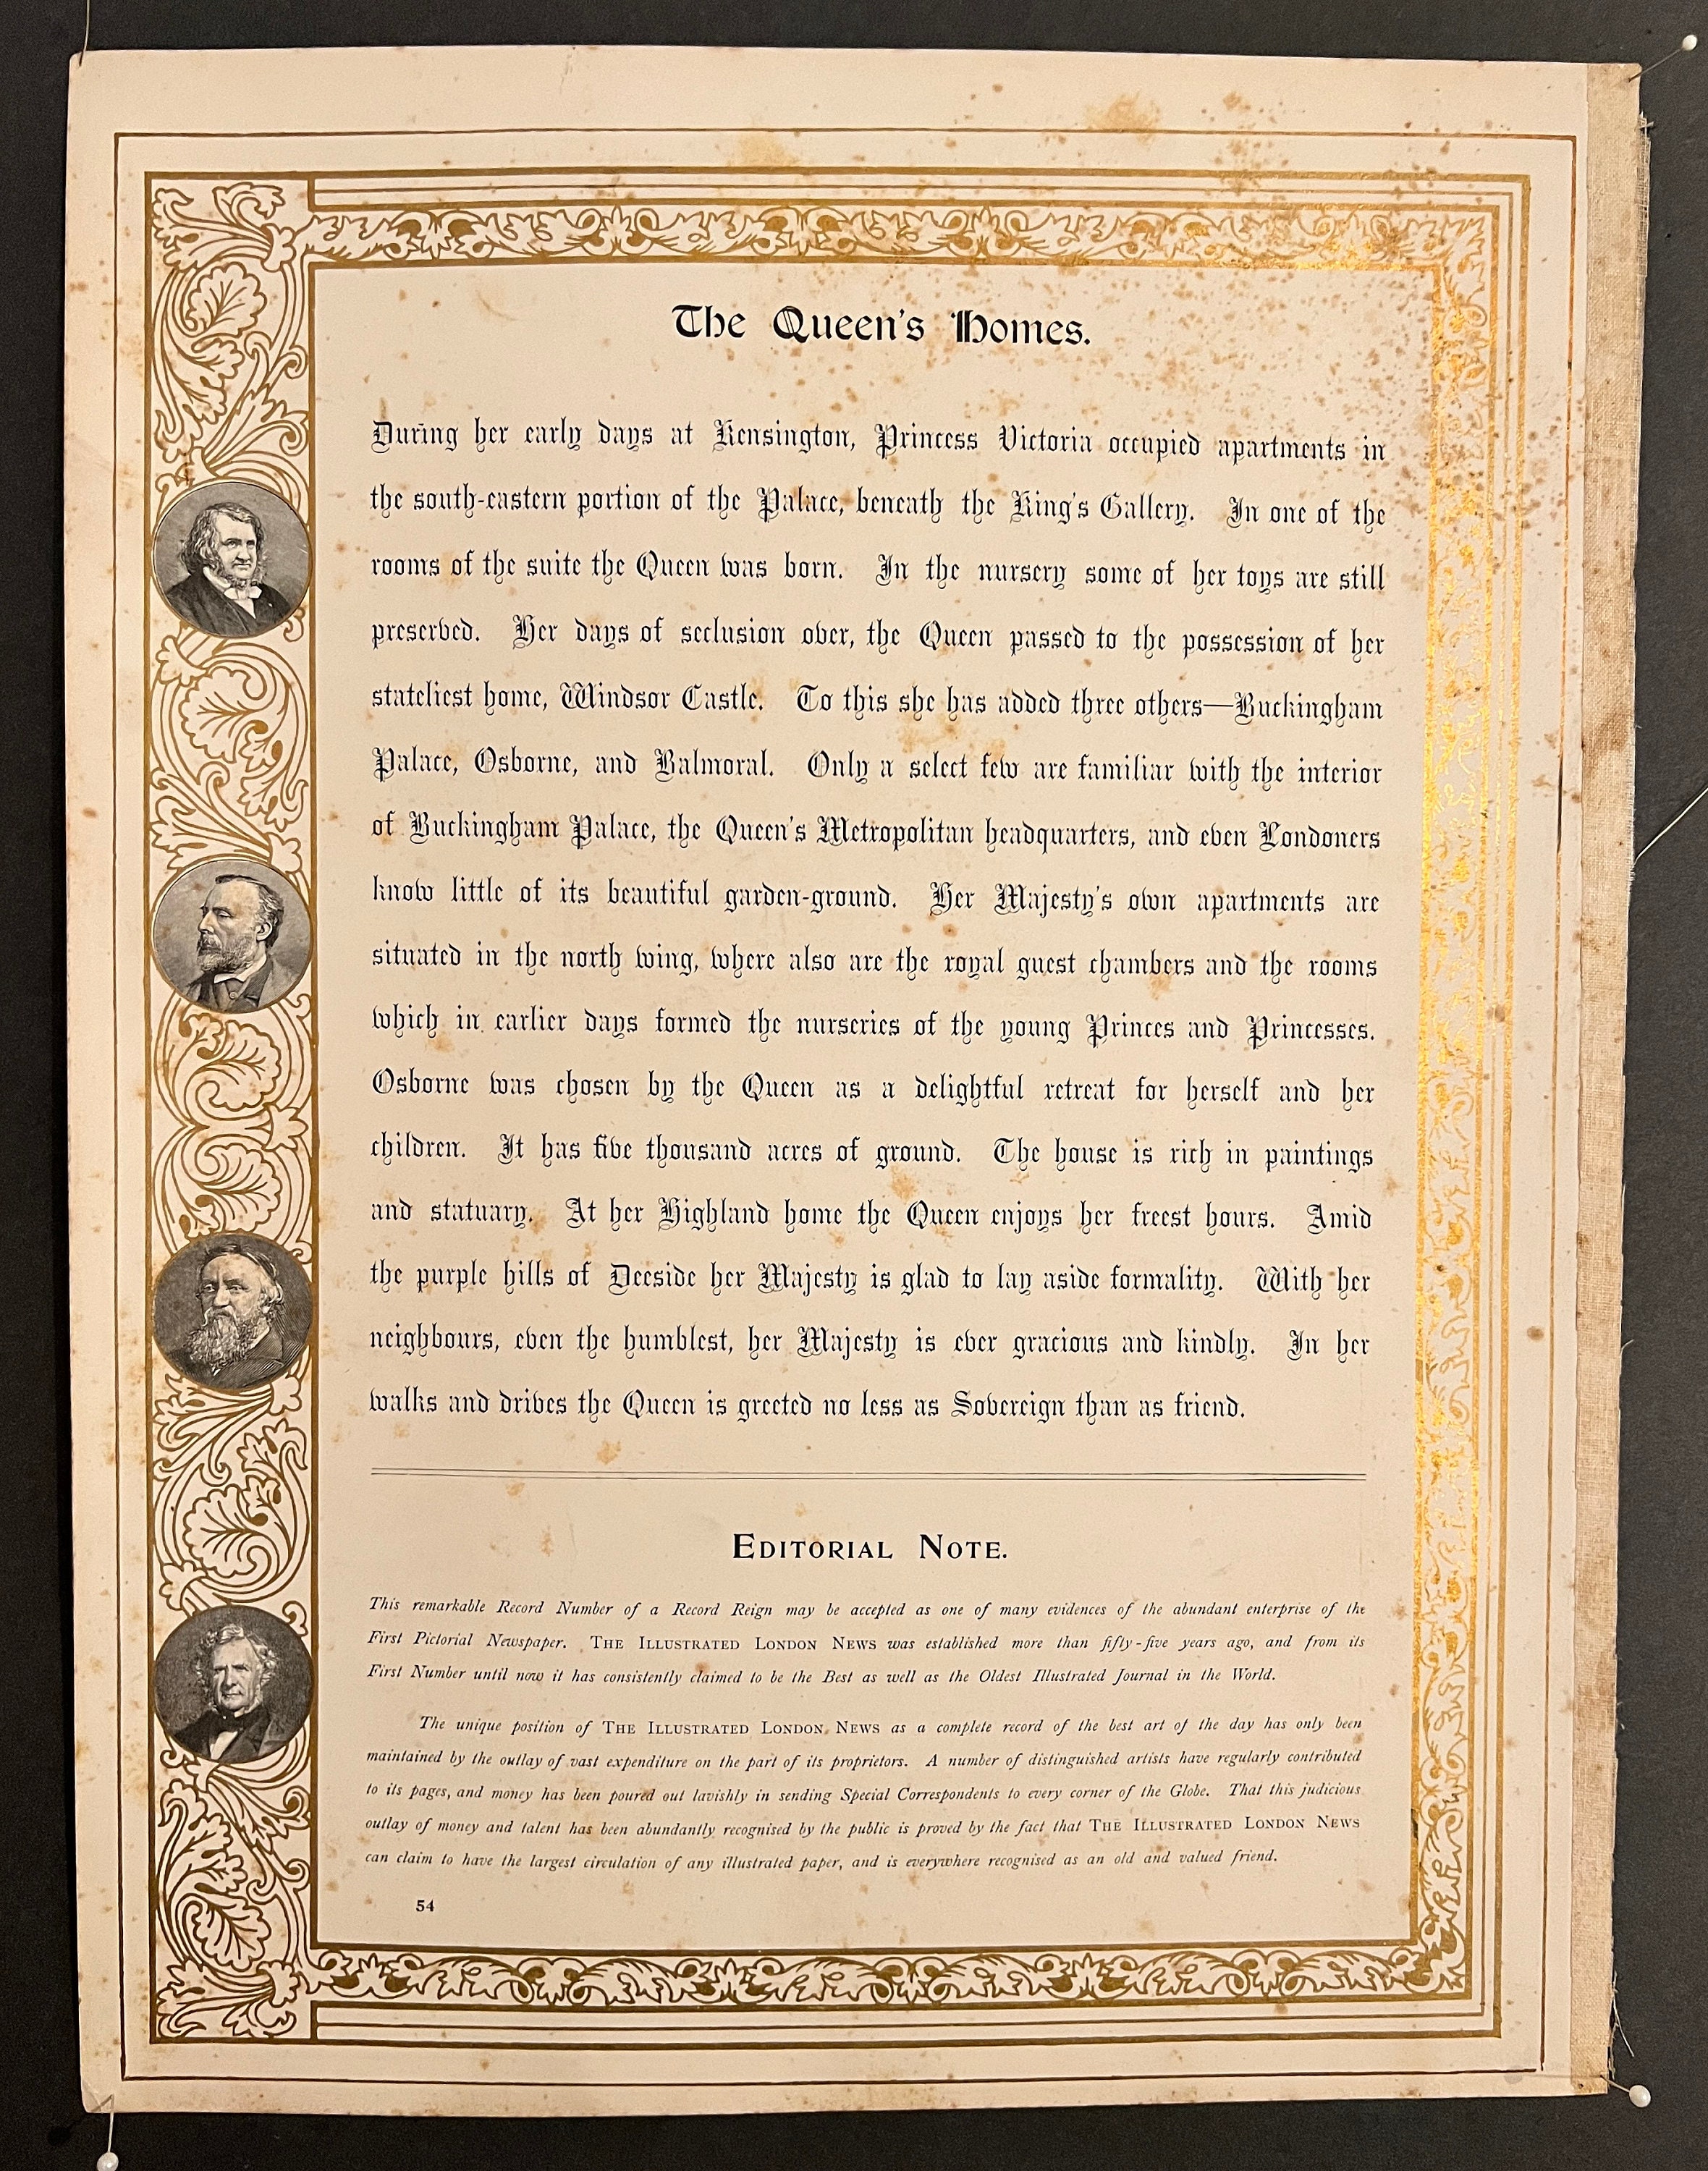 The Queen's Homes.
During her early days at Kensington, Princess Victoria occupied apartments in
the south-eastern portion of the Palace, beneath the King's Gallery. In one of the
rooms of the suite the Queen was born. In the nursery some of her toys are still
preserved. Her days of seclusion over, the Queen passed to the possession of her
stateliest home, Windsor Castle. To this she has added three others—Buckingham
Palace, Osborne, and Balmoral. Only a select few are familiar with the interior
of Buckingham Palace, the Queen's Metropolitan headquarters, and even Londoners
know little of its beautiful garden-ground. Her Majesty's own apartments are
situated in the north wing, where also are the royal guest chambers and the rooms
which in earlier days formed the nurseries of the young Princes and Princesses.
Osborne was chosen by the Queen as a delightful retreat for herself and her
children. It has five thousand acres of ground. The house is rich in paintings
and statuary. At her Highland home the Queen enjoys her freest hours. Amid
the purple hills of Deeside her Majesty is glad to lay aside formality. With her
neighbours, even the humblest, her Majesty is ever gracious and kindly. In her
walks and drives the Queen is greeted no less as Sovereign than as friend.
EDITORIAL NOTE.
This remarkable Record Number of a Record Reign may be accepted as one of many evidences of the abundant enterprise of the
First Pictorial Newspaper. THE ILLUSTRATED LONDON NEWS was established more than fifty-five years ago, and from its
First Number until now it has consistently claimed to be the Best as well as the Oldest Illustrated Journal in the World.
The unique position of THE ILLUSTRATED LONDON NEWS as a complete record of the best art of the day has only been
maintained by the outlay of vast expenditure on the part of its proprietors. A number of distinguished artists have regularly contributed
to its pages, and money has been poured out lavishly in sending Special Correspondents to every corner of the Globe. That this judicious
outlay of money and talent has been abundantly recognised by the public is proved by the fact that THE ILLUSTRATED LONDON NEWS
can claim to have the largest circulation of any illustrated paper, and is everywhere recognised as an old and valued friend.
54